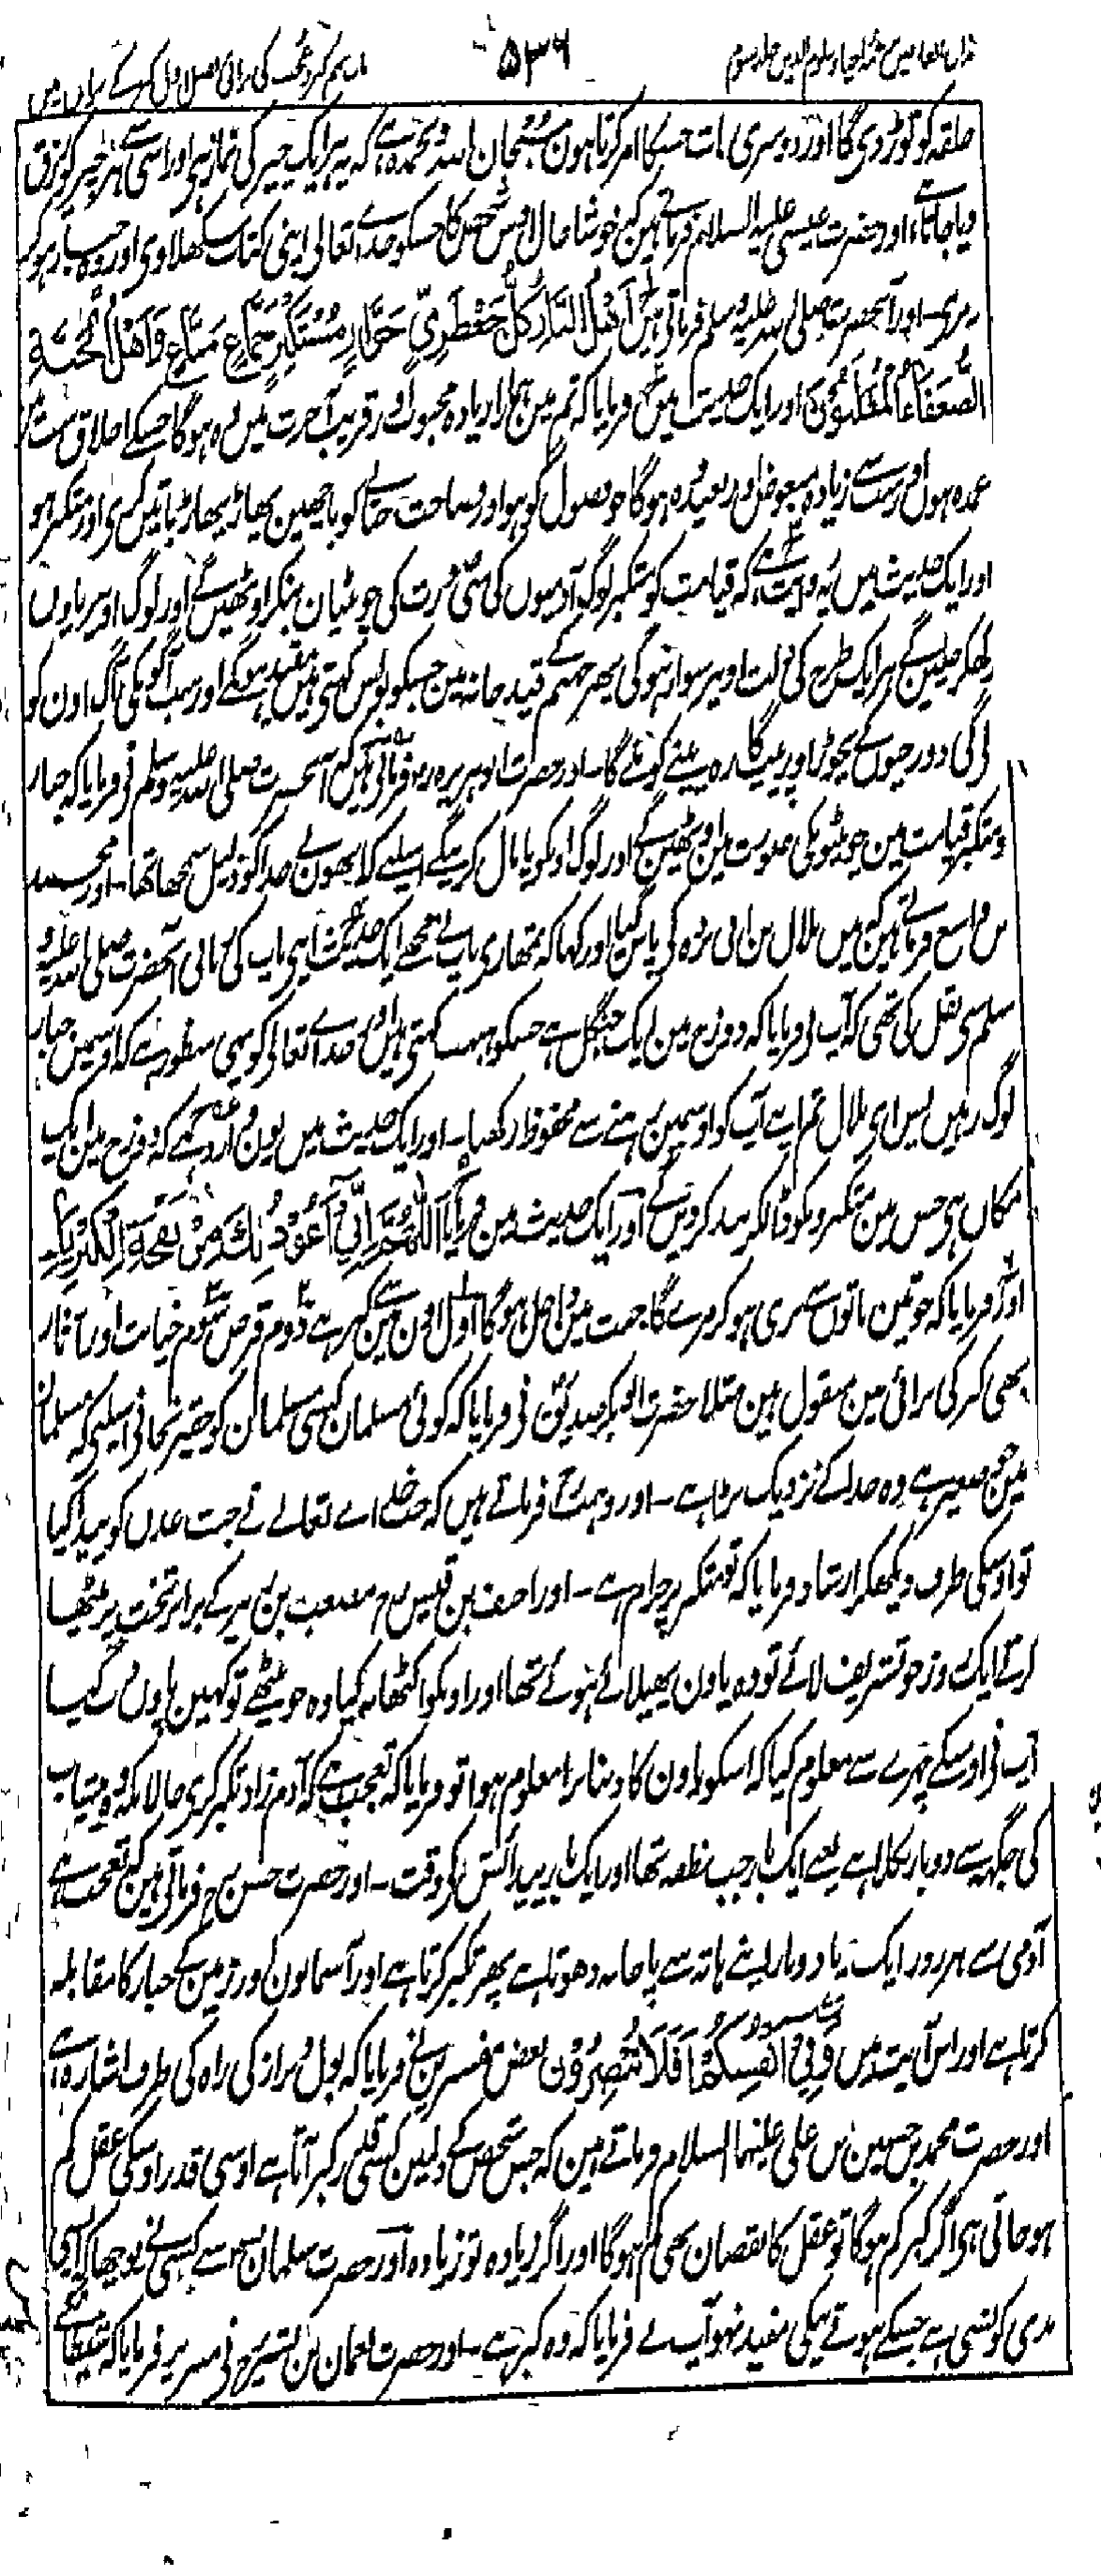 مذاق العارفین ترجمہ احیاء علوم الدین جلد سوم ۵۳۶ باب نہم کبر و عجب کی برائی فصل اول کبر کے بیان میں
حلقہ کو توڑ دی گا اور دوسری بات جسکا امر کرتا ہون سُبْحَانَ اللہِ وَبِحَمْدِہ ہے کہ یہ ہر ایک چیز کی نماز ہی اور اسی سے ہر چیز کو رزق
دیا جاتا ہے اور حضرت عیسی علیہ السلام فرماتے ہین کہ خوشا حال اوس شخص کا جسکو خدائے تعالی اپنی کتاب سکھلاوی اور وہ جبار ہو کر
نہ مری۔ اور آنحضرت صلی اللہ علیہ وسلم فرماتی ہین اَهْلُ النَّارِ كُلُّ جَعْظَرِيٍّ جَوَّاظٍ مُسْتَكْبِرٍ جَمَّاعٍ مَنَّاعٍ وَاَهْلُ الْجَنَّةِ
الضُّعَفَاءُ الْمُقِلُّوْنَ اور ایک حدیث میں فرمایا کہ تم مین ہمارا زیادہ محبوب اور قریب آخرت میں وہ ہوگا جسکے اخلاق سب میں
عمدہ ہوں اور سب سے زیادہ مبغوض اور بعید وہ ہوگا جو فضول گو ہو اور فصاحت جتانے کو باچھین پھاڑ پھاڑ باتیں کری اور متکبر ہو
اور ایک حدیث میں یہ وارد ہے کہ قیامت کو متکبر لوگ آدمیوں کی سی صورت کی چونٹیان بنکر اوٹھیں گے اور لوگ اوپر پاؤں
رکھکر چلیں گے ہر ایک طرح کی ذلت اوپر سوار ہوگی پھر جہنم کے قید خانہ مین جسکو بولس کہتی ہیں مقید ہونگے اور سب آگو نکی آگ اون کو
لگی گی دوزخیوں کے نچوڑ اور پیپ گارہ پینے کو ملے گا۔ اور حضرت ابو ہریرہ رض فرماتی ہیں کہ آنحضرت صلی اللہ علیہ وسلم نی فرمایا کہ جبار
و متکبر قیامت مین چونٹیونکی صورت مین اوٹھین گے اور لوگ اونکو پامال کرینگے اسلیے کہ انھوں نے خدا کو ذلیل سمجھا تھا۔ اور محمد
بن واسع فرماتے ہین کہ میں بلال بن ابی بردہ کی پاس گیا اور کہا کہ تمھاری باپ نے مجھے ایک حدیث اپنی باپ کی زبانی آنحضرت صلی اللہ علیہ و
سلم سی نقل کی تھی کہ آپ نی فرمایا کہ دوزخ مین ایک جنگل ہے جسکو ہبہب کہتی ہیں اور خدائے تعالی کو یہی منظور ہے کہ اوسمیں جبار
لوگ رہیں پس ای بلال تم اپنے آپ کو اوسمین رہنے سے محفوظ رکھنا۔ اور ایک حدیث میں یون وارد ہے کہ دوزخ میں ایک
مکان ہی جس مین متکبرونکو ڈالکر بند کر دیں گے اور ایک حدیث مین فرمایا اَللّٰهُمَّ اِنِّيْ اَعُوْذُ بِكَ مِنْ نَفْخَةِ الْكِبْرِيَاءِ
اور فرمایا کہ جو تین باتوں سے بری ہو کر مرے گا جنت میں داخل ہوگا اول اون مین سے کبر ہے دوم قرض سوم خیانت اور آثار
بھی کبر کی برائی مین منقول ہین مثلا حضرت ابو بکر صدیق نی فرمایا کہ کوئی مسلمان کسی مسلمان کو حقیر نجانی اسلیے کہ مسلمانو
مین جو صغیر ہے وہ خدا کے نزدیک بڑا ہے۔ اور وہب رح فرماتے ہیں کہ جب خدائے تعالے نے جنت عدن کو پیدا کیا
تو اوسکی طرف دیکھکر ارشاد فرمایا کہ تو متکبر پر حرام ہے۔ اور احنف بن قیس رح مصعب بن زبیر کے برابر تخت پر بیٹھا
کرتے ایک روز جو تشریف لائے تو وہ پاون پھیلائے ہوئے تھا اور اونکو اکٹھا نہ کیا وہ جو بیٹھے تو کہیں پاوں دب گیا
آپ نی اوسکے چہرے سے معلوم کیا کہ اسکو پاون کا دبنا برا معلوم ہوا تو فرمایا کہ تعجب ہے کہ آدم زاد تکبر کری حالانکہ وہ پیشاب
کی جگہہ سے دوبار نکلا ہے یعنے ایک بار جب نطفہ تھا اور ایک بار پیدائش کی وقت۔ اور حضرت حسن رح فرماتی ہین کہ تعجب ہے
آدمی سے ہر روز ایک یا دو بار اپنے ہاتہ سے پاخانہ دھوتا ہے پھر تکبر کرتا ہے اور آسمانون اور زمین کے جبار کا مقابلہ
کرتا ہے اور اس آیت میں وَفِيْ اَنْفُسِكُمْ اَفَلَا تُبْصِرُوْنَ بعض مفسرین نے فرمایا کہ بول و براز کی راہ کی طرف اشارہ ہے
اور حضرت محمد بن حسین بن علی علیہما السلام فرماتے ہین کہ جس شخص کے دلمین کسی قدر کبر آتا ہے اوسی قدر اوسکی عقل کم
ہو جاتی ہی اگر کبر کم ہوگا تو عقل کا نقصان بھی کم ہوگا اور اگر زیادہ تو زیادہ اور حضرت سلمان رض سے کسی نے پوچھا کہ ایسی
بدی کونسی ہے جسکے ہوتے نیکی مفید نہو آپ نے فرمایا کہ وہ کبر ہے۔ اور حضرت نعمان بن بشیر رض نی ممبر پر فرمایا کہ شیطان کے